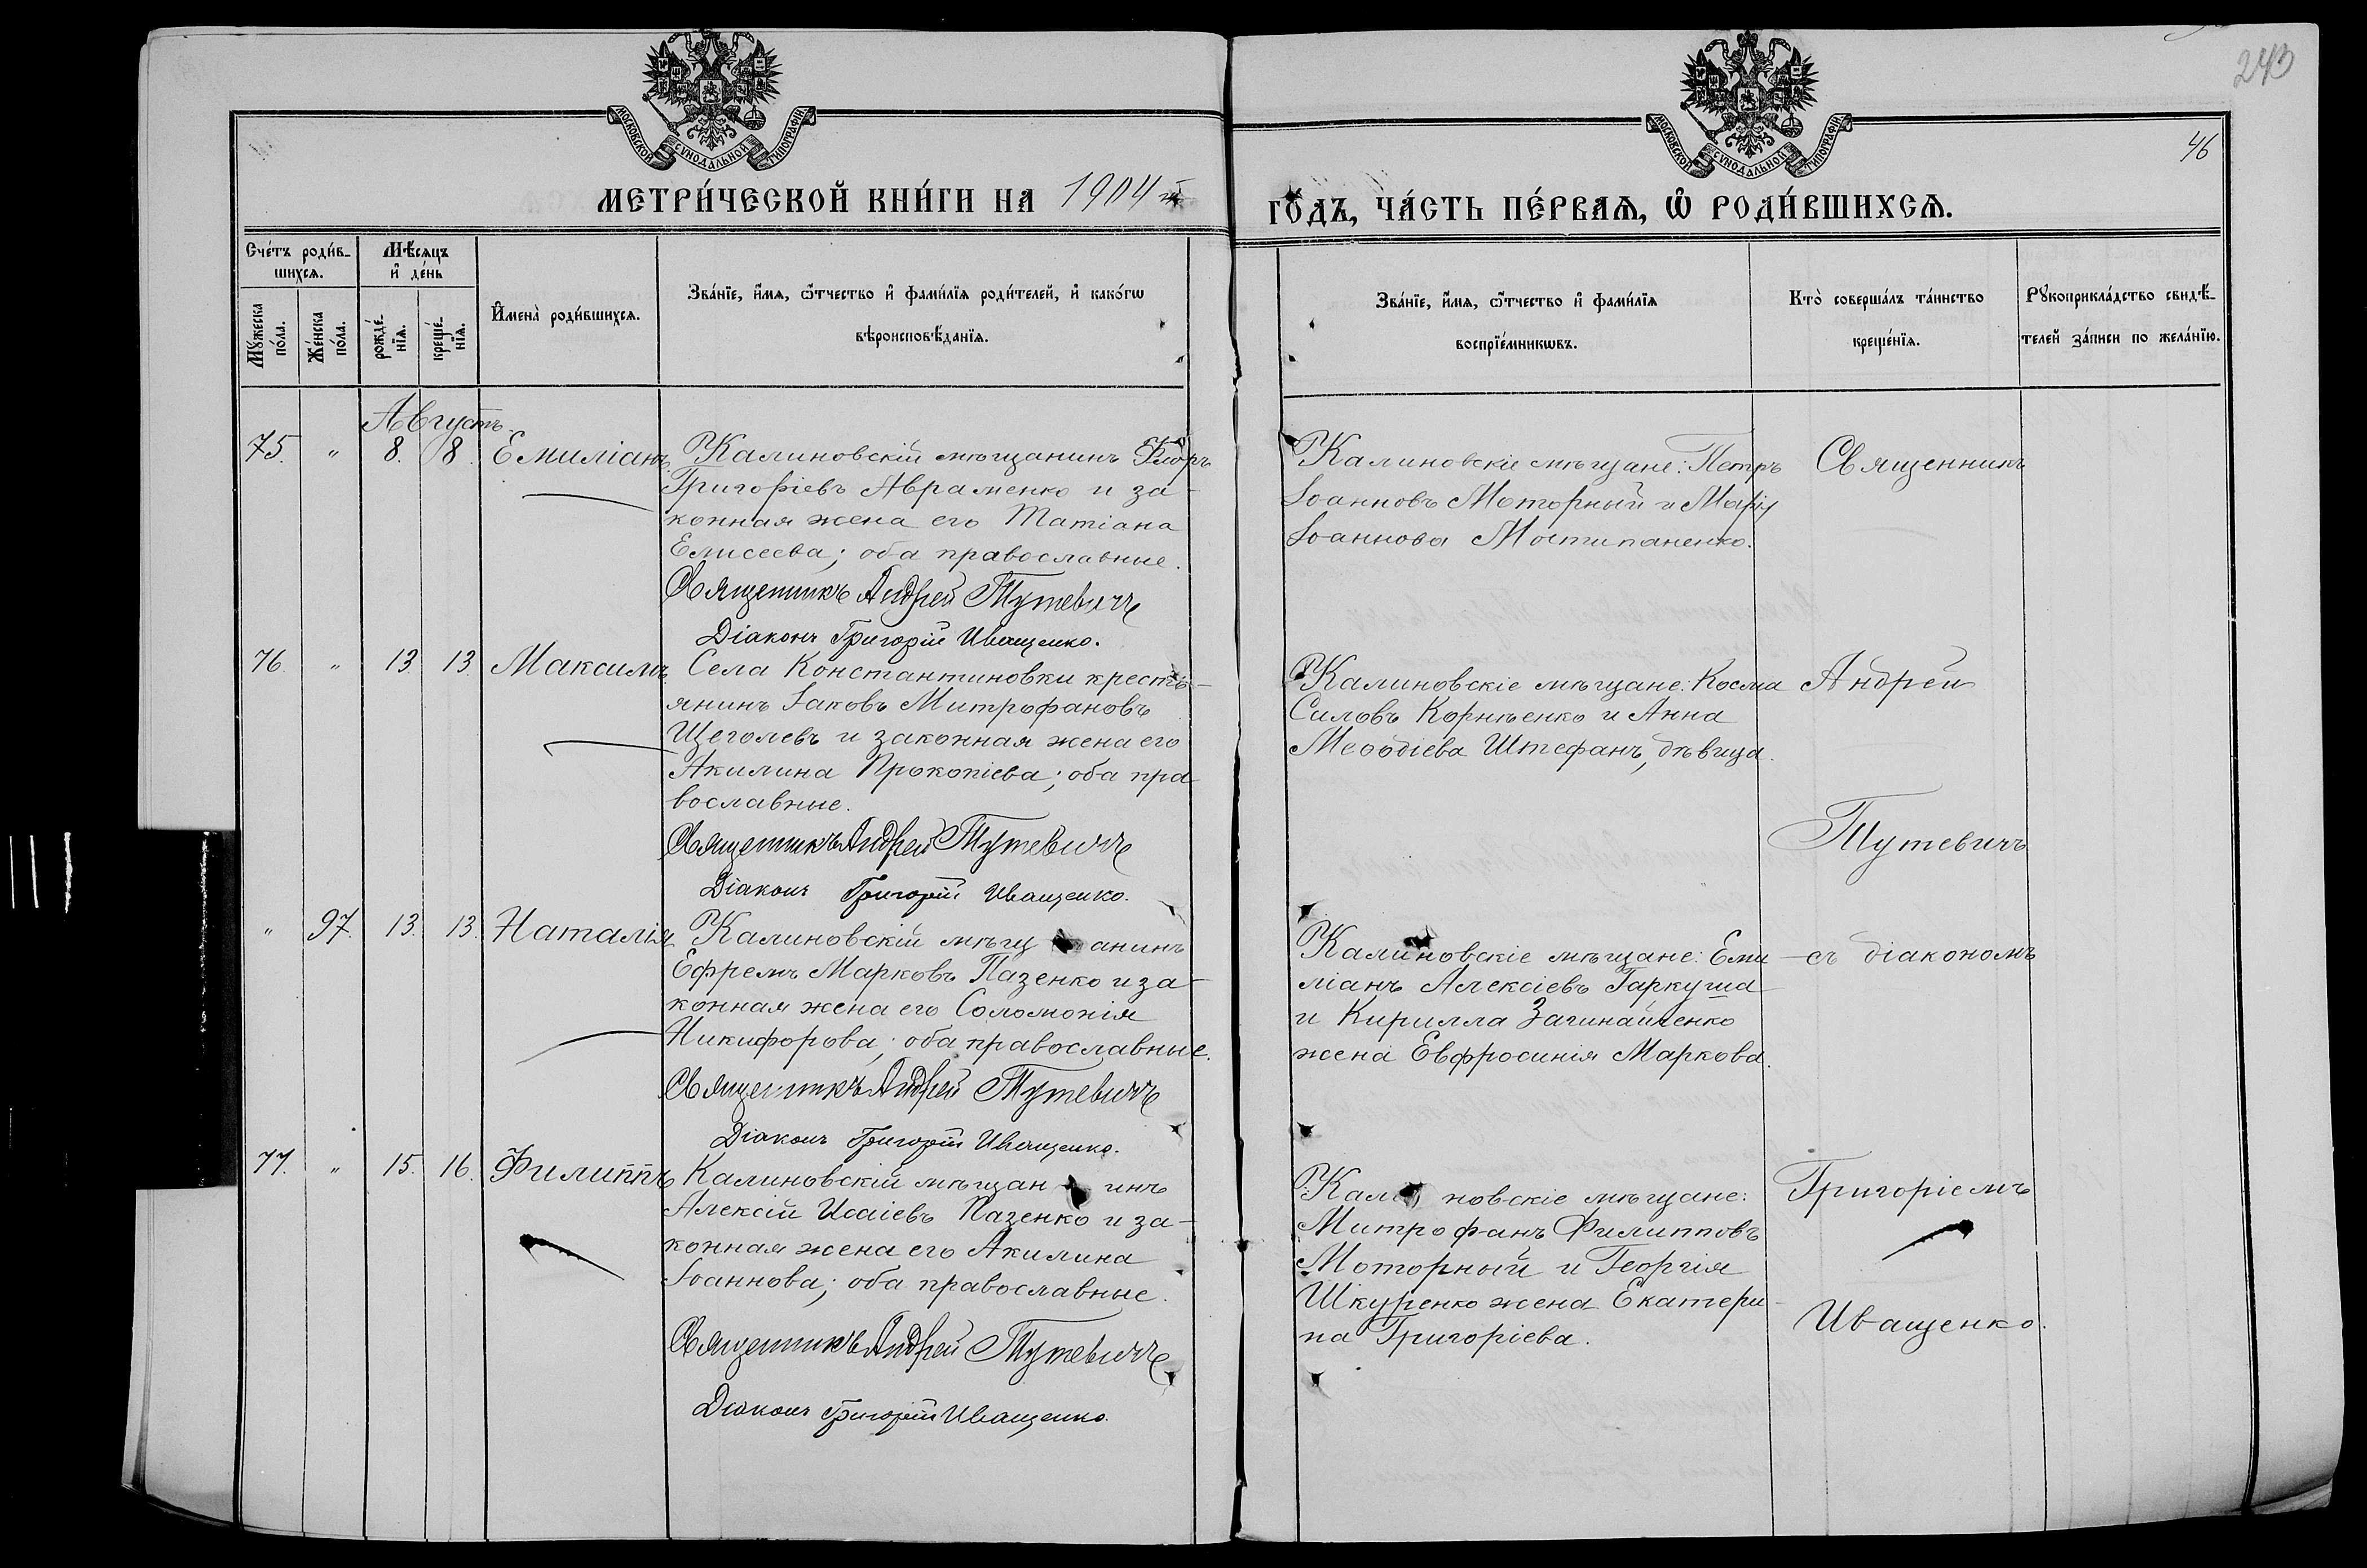 243
46
МОСКОВСКОЙ СѴНОДАЛЬНОЙ ТИПОГРАФІИ
МОСКОВСКОЙ СѴНОДАЛЬНОЙ ТИПОГРАФІИ
МЕТРИ́ЧЕСКОЙ КНИ́ГИ НА 1904 й
ГО́ДЪ, ЧА́СТЬ ПЕ́РВАѦ, Ѡ҆ РОДИ́ВШИХСѦ.
Сче́тъ роди́в-
шихсѧ.
Мꙋ́жеска по́ла.
Же́нска по́ла.
Мѣ́сѧцъ
и҆ де́нь
рожде́-
нїѧ.
креще́-
нїѧ.
И҆мена̀ роди́вшихсѧ.
Зва́нїе, и҆́мѧ, ѻ҆́тчество и҆ фами́лїѧ роди́телей, и҆ како́гѡ
вѣроисповѣ́данїѧ.
Зва́нїе, и҆́мѧ, ѻ҆́тчество и҆ фами́лїѧ
воспрїе́мникѡвъ.
Кто̀ соверша́лъ та́инство
креще́нїѧ.
Рꙋкоприкла́дство свидѣ́-
телей за́писи по жела́нїю.
Августъ.
75. " 8. 8. Емиліанъ
Калиновскій мѣщанинъ Флоръ
Григоріевъ Авраменко и за-
конная жена его Татіана
Елисеева; оба православные.
Священникъ Андрей Тутевичъ
Діаконъ Григорій Иващенко.
Калиновскіе мѣщане: Петръ
Іоанновъ Моторный и Марія
Іоаннова
Священникъ
76. " 13. 13. Максимъ
Села Константиновки кресть-
янинъ Іаковъ Митрофановъ
Щеголевъ и законная жена его
Акилина Прокопіева; оба пра
вославные.
Священникъ Андрей Тутевичъ
Діаконъ Григорій Иващенко.
Калиновскіе мѣщане: Косма
Силовъ Корнѣенко и Анна
Меѳодіева Штефанъ, дѣвица.
Андрей
Тутевичъ
" 97. 13. 13. Наталія
Калиновскій мѣщ анинъ
Ефремъ Марковъ Пазенко и за-
конная жена его Соломонія
Никифорова; оба православные.
Священникъ Андрей Тутевичъ
Діаконъ Григорій Иващенко.
Калиновскіе мѣщане: Еми-
ліанъ Алексіевъ Гаркуша
и Кирилла Зачинайченко
жена Евфросинія Маркова.
съ діакономъ
77. " 15. 16. Филиппъ
Калиновскій мѣщан инъ
Алексій Исаіевъ Пазенко и за-
конная жена его Акилина
Іоаннова; оба православные.
Священникъ Андрей Тутевичъ
Діаконъ Григорій Иващенко.
Кали новскіе мѣщане:
Митрофанъ Филипповъ
Моторный и Георгія
Шкуренко жена Екатери-
на Григоріева.
Григоріемъ
Иващенко.